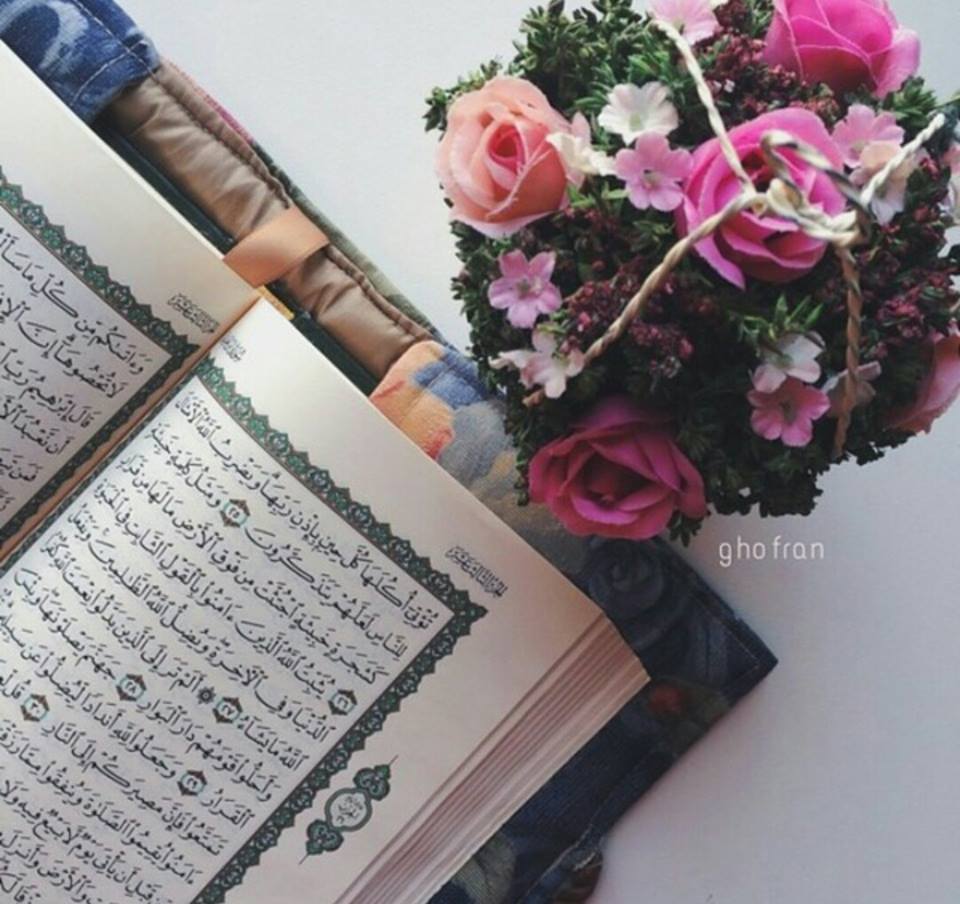 وَءَاتَىٰكُم مِّن كُلِّ مَا سَأَلْ
لَا تُحْصُوهَآ إِنَّ ٱلْإِ
قَالَ إِبْرَٰهِيمُ رَبِّ ٱ
أَن نَّعْبُدَ ٱلْأَ
فَمَن تَبِ
تُؤْتِىٓ أُكُلَهَا كُلَّ حِينٍۭ بِإِذْنِ رَبِّهَا وَيَضْرِبُ ٱللَّهُ ٱلْأَمْثَالَ
لِلنَّاسِ لَعَلَّهُمْ يَتَذَكَّرُونَ ٢٥ وَمَثَلُ كَلِمَةٍ خَبِيثَةٍ
كَشَجَرَةٍ خَبِيثَةٍ ٱجْتُثَّتْ مِن فَوْقِ ٱلْأَرْضِ مَا لَهَا مِن قَرَارٍ
٢٦ يُثَبِّتُ ٱللَّهُ ٱلَّذِينَ ءَامَنُوا۟ بِٱلْقَوْلِ ٱلثَّابِتِ فِى ٱلْحَيَوٰةِ
ٱلدُّنْيَا وَفِى ٱلْءَاخِرَةِ وَيُضِلُّ ٱللَّهُ ٱلظَّٰلِمِينَ وَيَفْعَلُ
ٱللَّهُ مَا يَشَآءُ ٢٧ ۞ أَلَمْ تَرَ إِلَى ٱلَّذِينَ بَدَّلُوا۟ نِعْمَتَ ٱللَّهِ كُفْرًا
وَأَحَلُّوا۟ قَوْمَهُمْ دَارَ ٱلْبَوَارِ ٢٨ جَهَنَّمَ يَصْلَوْنَهَا وَبِئْسَ
ٱلْقَرَارُ ٢٩ وَجَعَلُوا۟ لِلَّهِ أَندَادًا لِّيُضِلُّوا۟ عَن سَبِيلِهِ
تَمَتَّعُوا۟ فَإِنَّ مَصِيرَكُمْ إِلَى ٱلنَّارِ ٣٠ قُل لِّعِ
ءَامَنُوا۟ يُقِيمُوا۟ ٱلصَّلَوٰةَ وَيُنفِقُوا۟ مِمَّا رَزَقْ
قَبْلِ أَن يَأْتِىَ يَوْمٌ لَّا بَيْعٌ فِيهِ وَلَا
وَٱلْأَرْضَ وَأَنزَلَ
ghofran